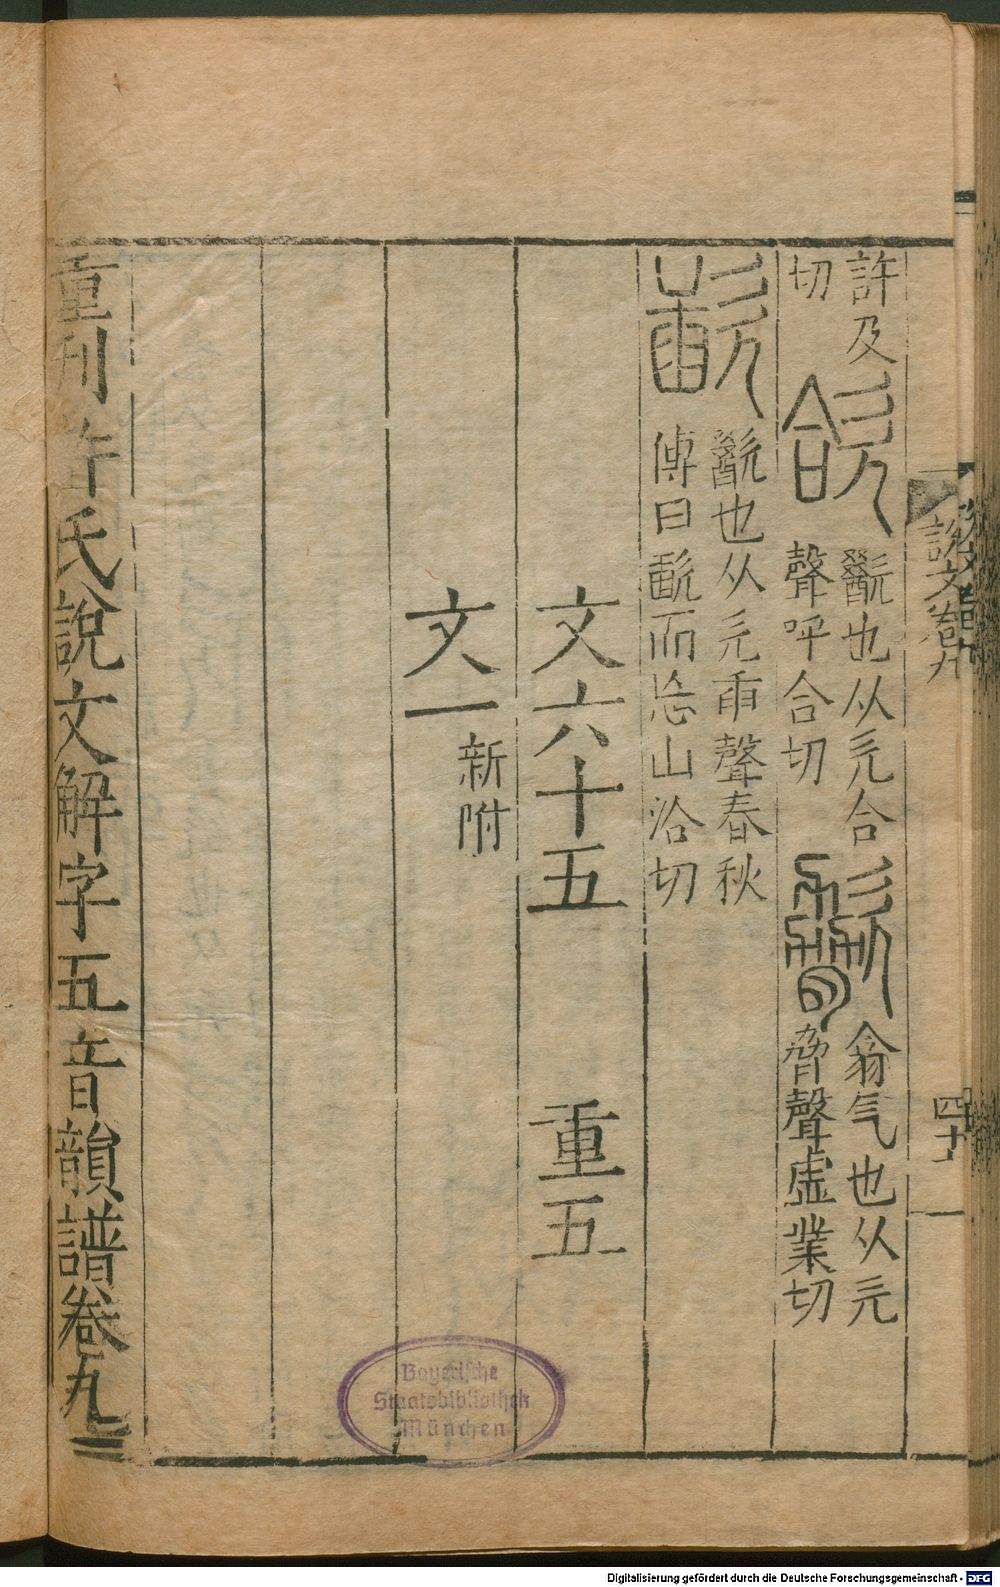 許及切欱歠也从欠合聲呼合切㰼翕气也从欠脅聲虛業切
歃歠也从欠臿聲春秋傳曰歃而忘山洽切
文六十五 重五
文一 新附
重刊許氏說文解字五音韻譜卷九
說文卷九
四十
Bayerische
Staatsbibliothek
München
Digitalisierung gefördert durch die Deutsche Forschungsgemeinschaft - DFG